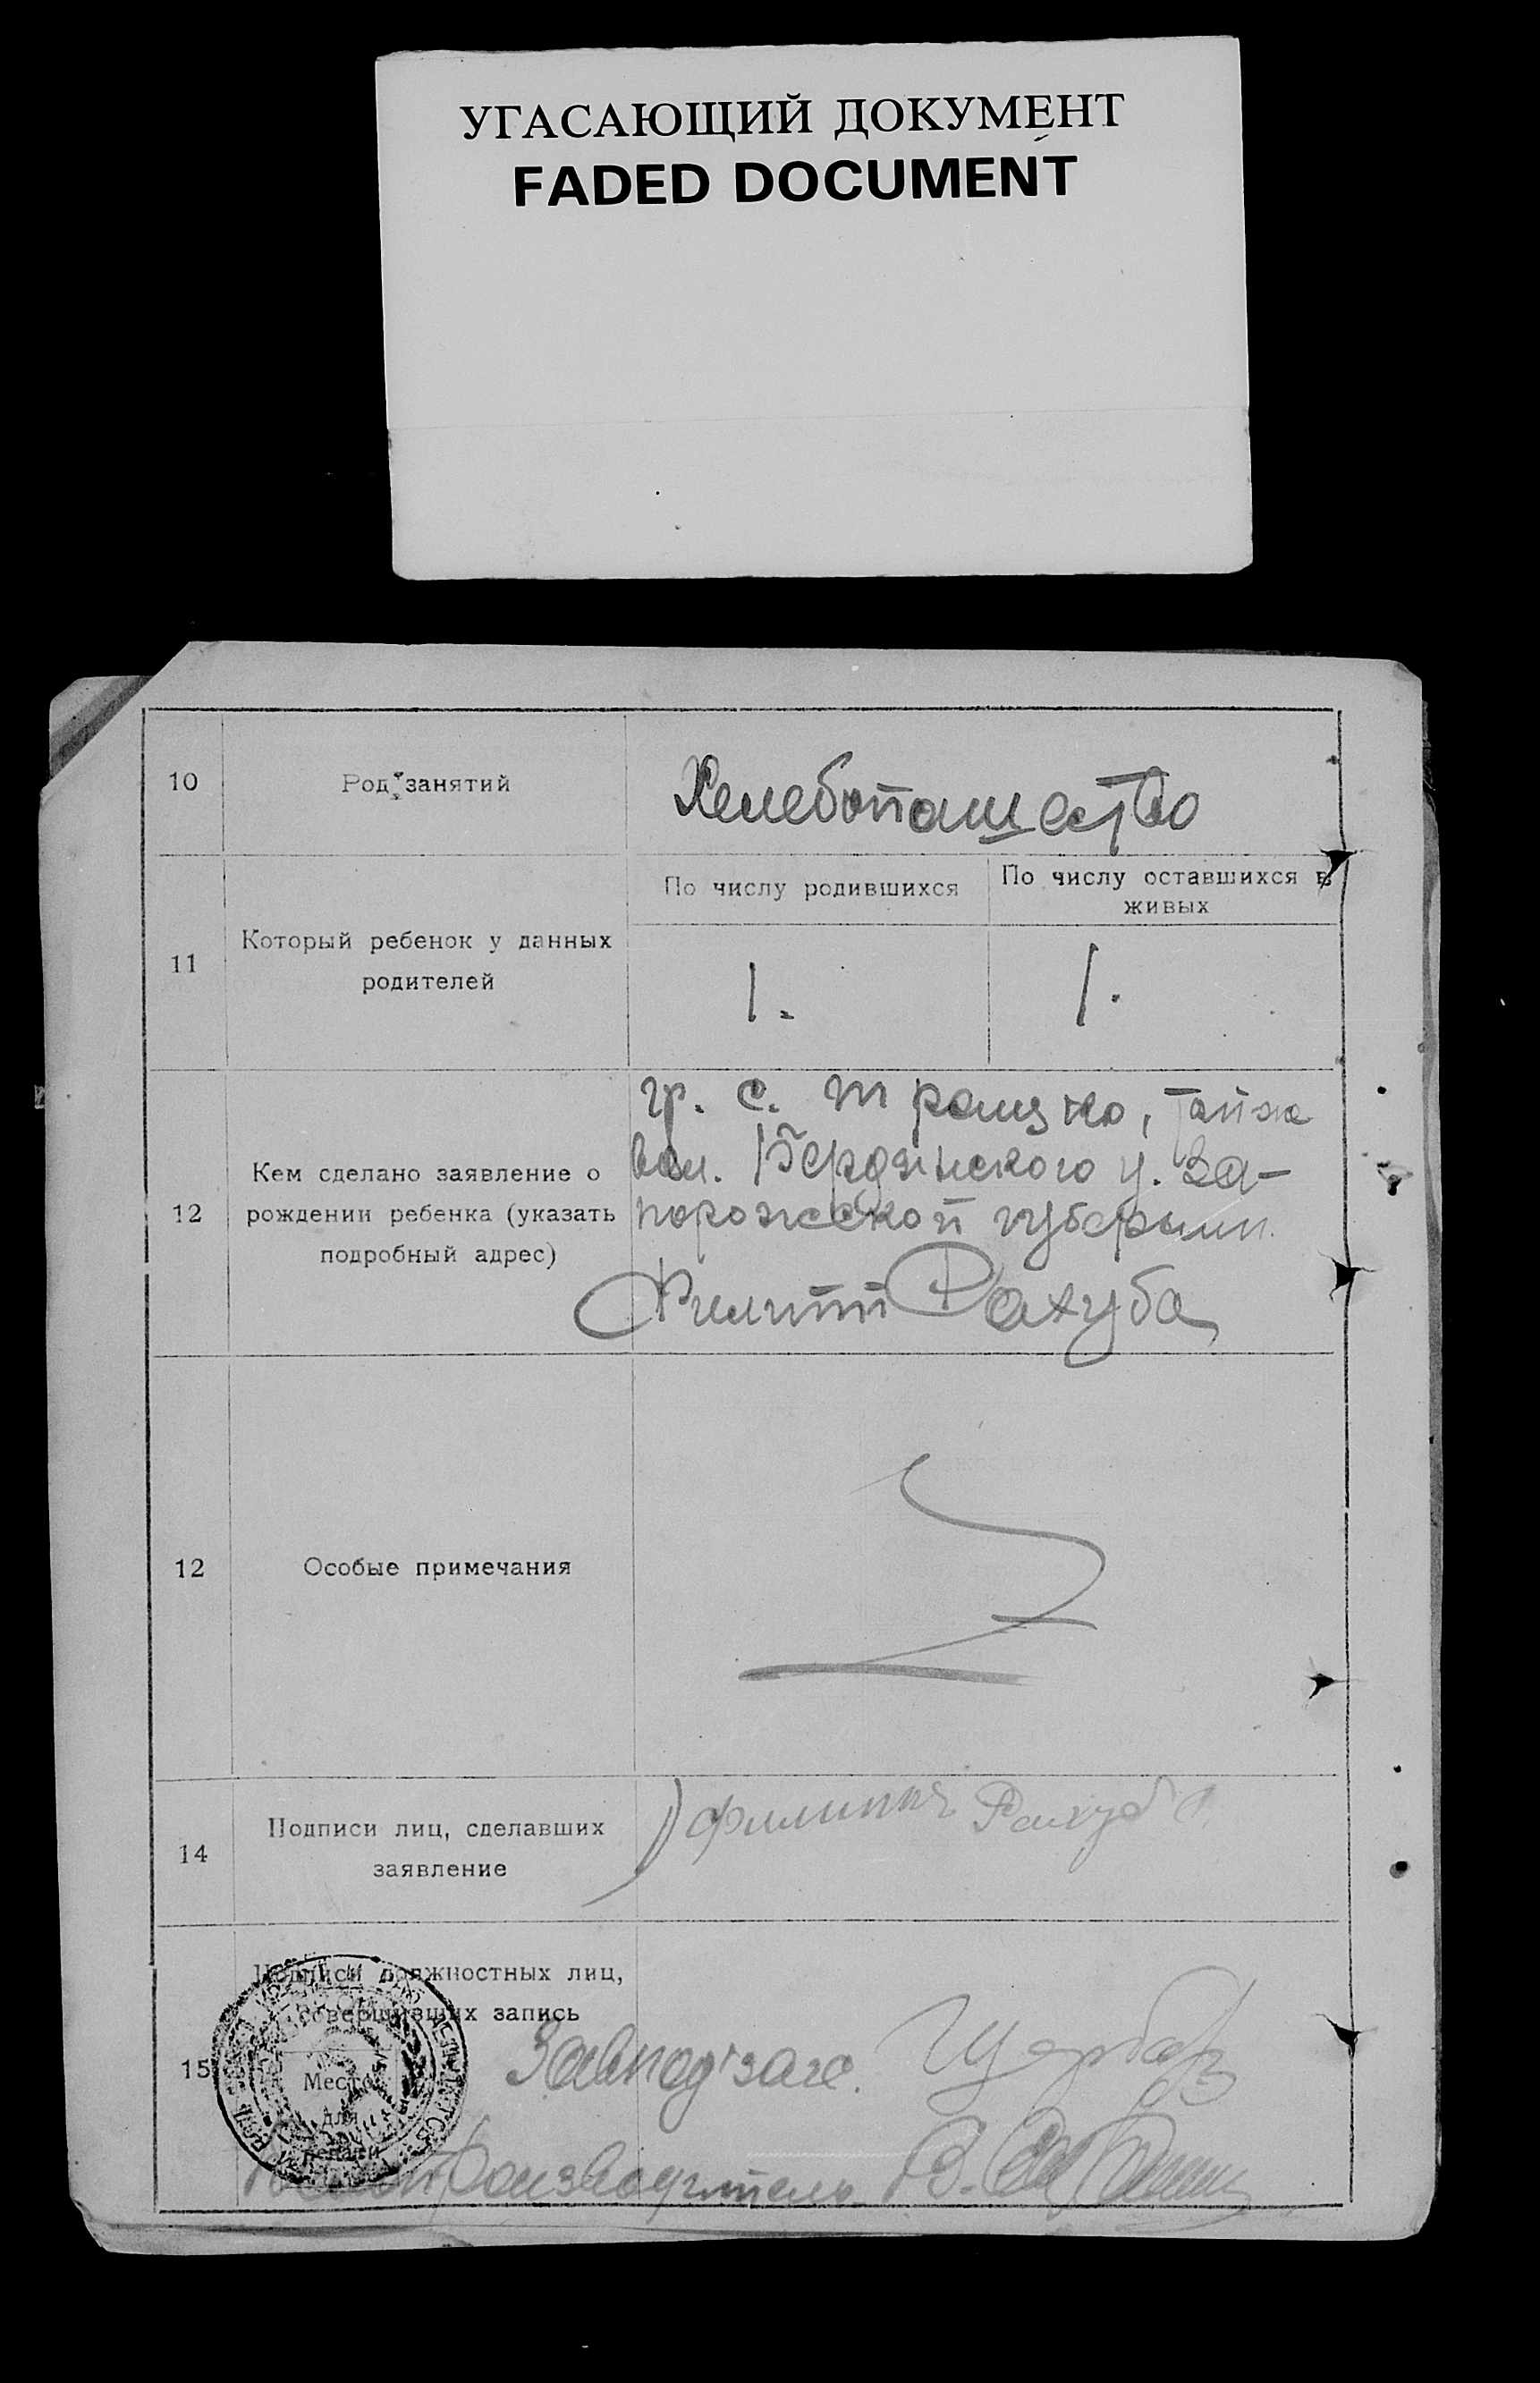 УГАСАЮЩИЙ ДОКУМЕНТ
FADED DOCUMENT
10
Род занятий
Хлебопашество
11
Который ребенок у данных
родителей
По числу родившихся
По числу оставшихся в
живых
1.
1.
12
Кем сделано заявление о
рождении ребенка (указать
подробный адрес)
гр. с.
вол. Бердянского у. За-
порожской губернии
Филипп Рахуба
12
Особые примечания
14
Подписи лиц, сделавших
заявление
Филипп Рахуба
15
Подписи должностных лиц,
совершивших запись
Место
для
печати
Завподзагс. Щерба
Делопроизводитель В.